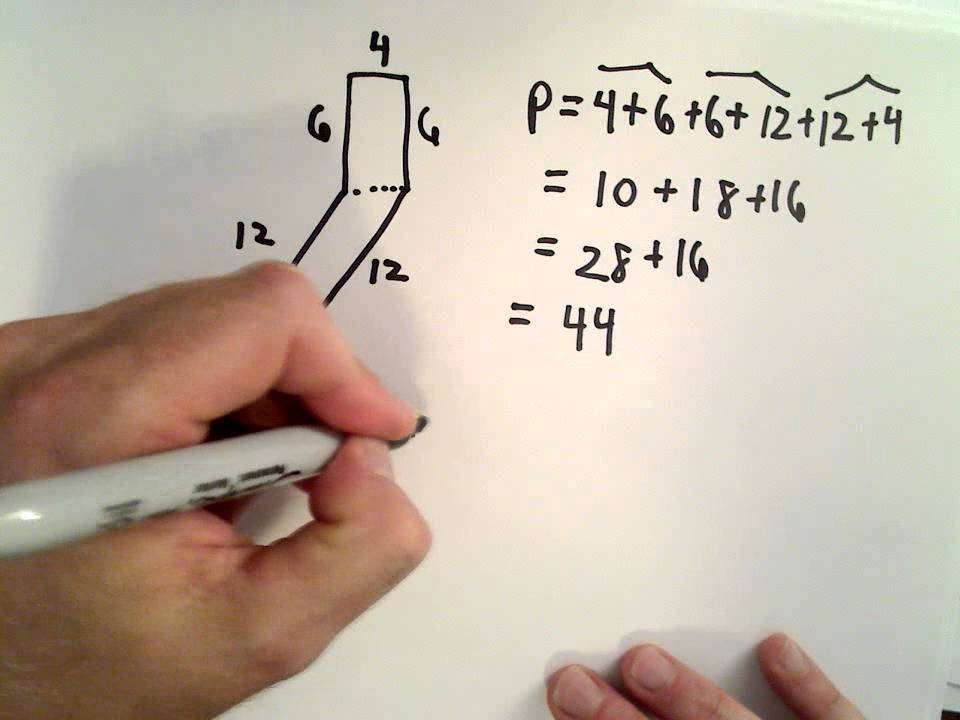 4
6 6
12
12
P = 4+6+6+12+12+4
= 10+18+16
= 28+16
= 44